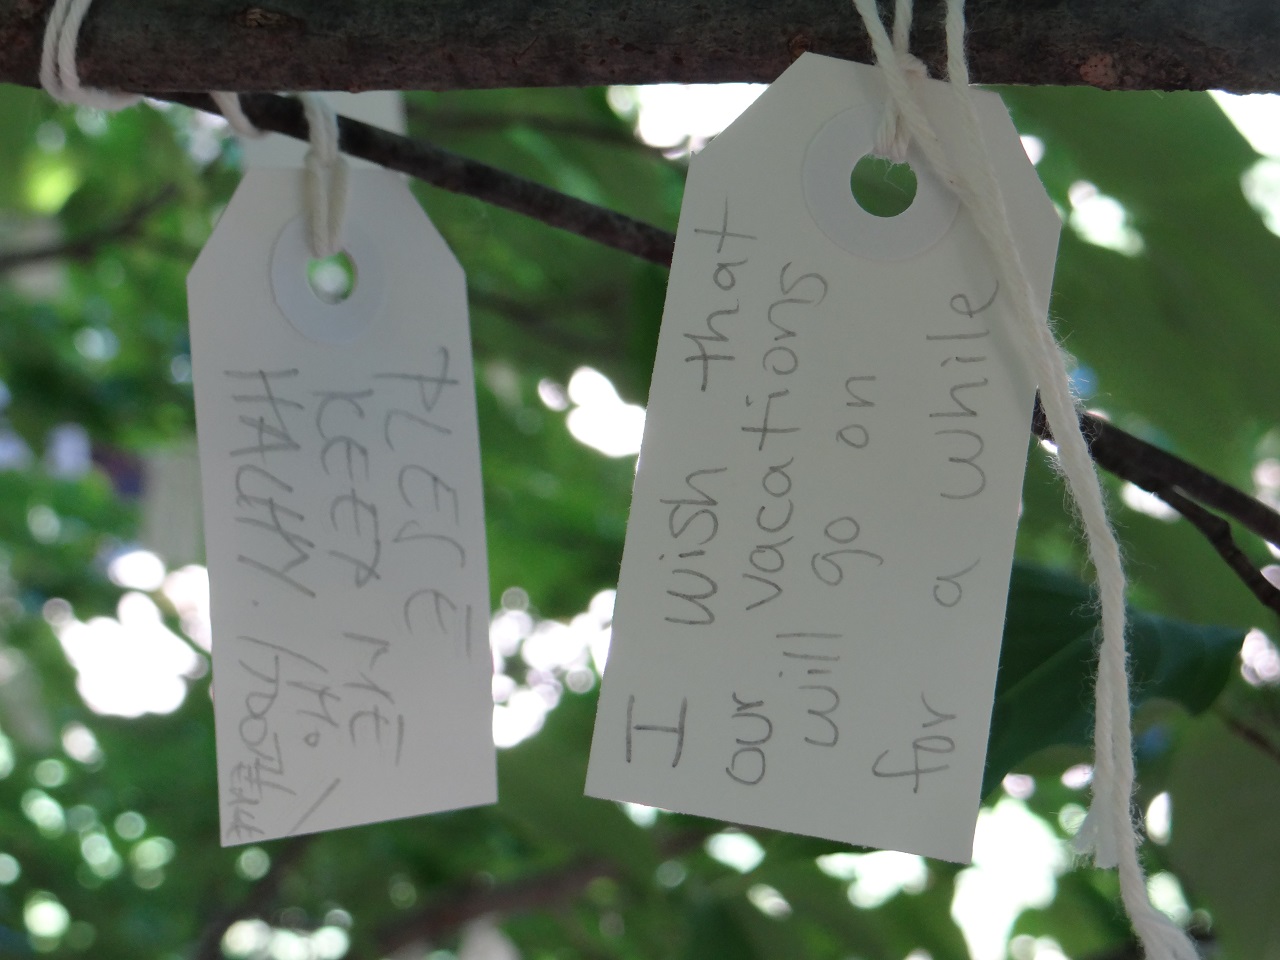 PLESE
KEEP ME
HALHY.
I wish that
our vacations
will go on
for a while